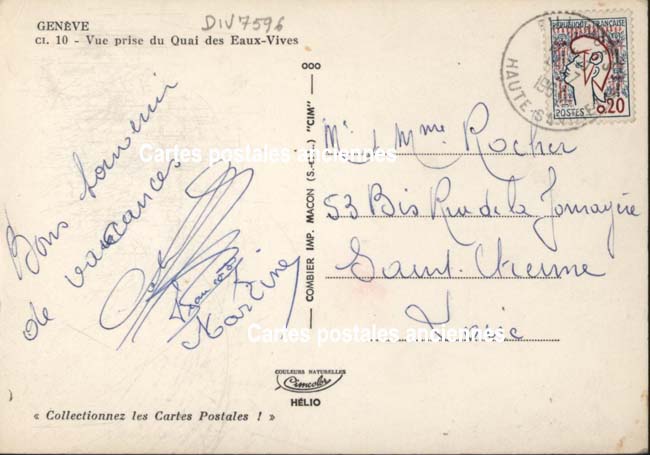 GENÈVE
CL. 10 - Vue prise du Quai des Eaux-Vives
DIV7596
Bons souvenir
de vacances
Martine
ooo
COMBIER IMP. MACON (S.-et-L.) "CIM"
RÉPUBLIQUE FRANÇAISE
POSTES 0,20
HAUTE-SAVOIE
Mr & Mme Rocher
53 Bis Rue de la
Saint. Etienne
Loire
Cartes postales anciennes
Cartes postales anciennes
COULEURS NATURELLES
Cimcolor
HÉLIO
« Collectionnez les Cartes Postales ! »